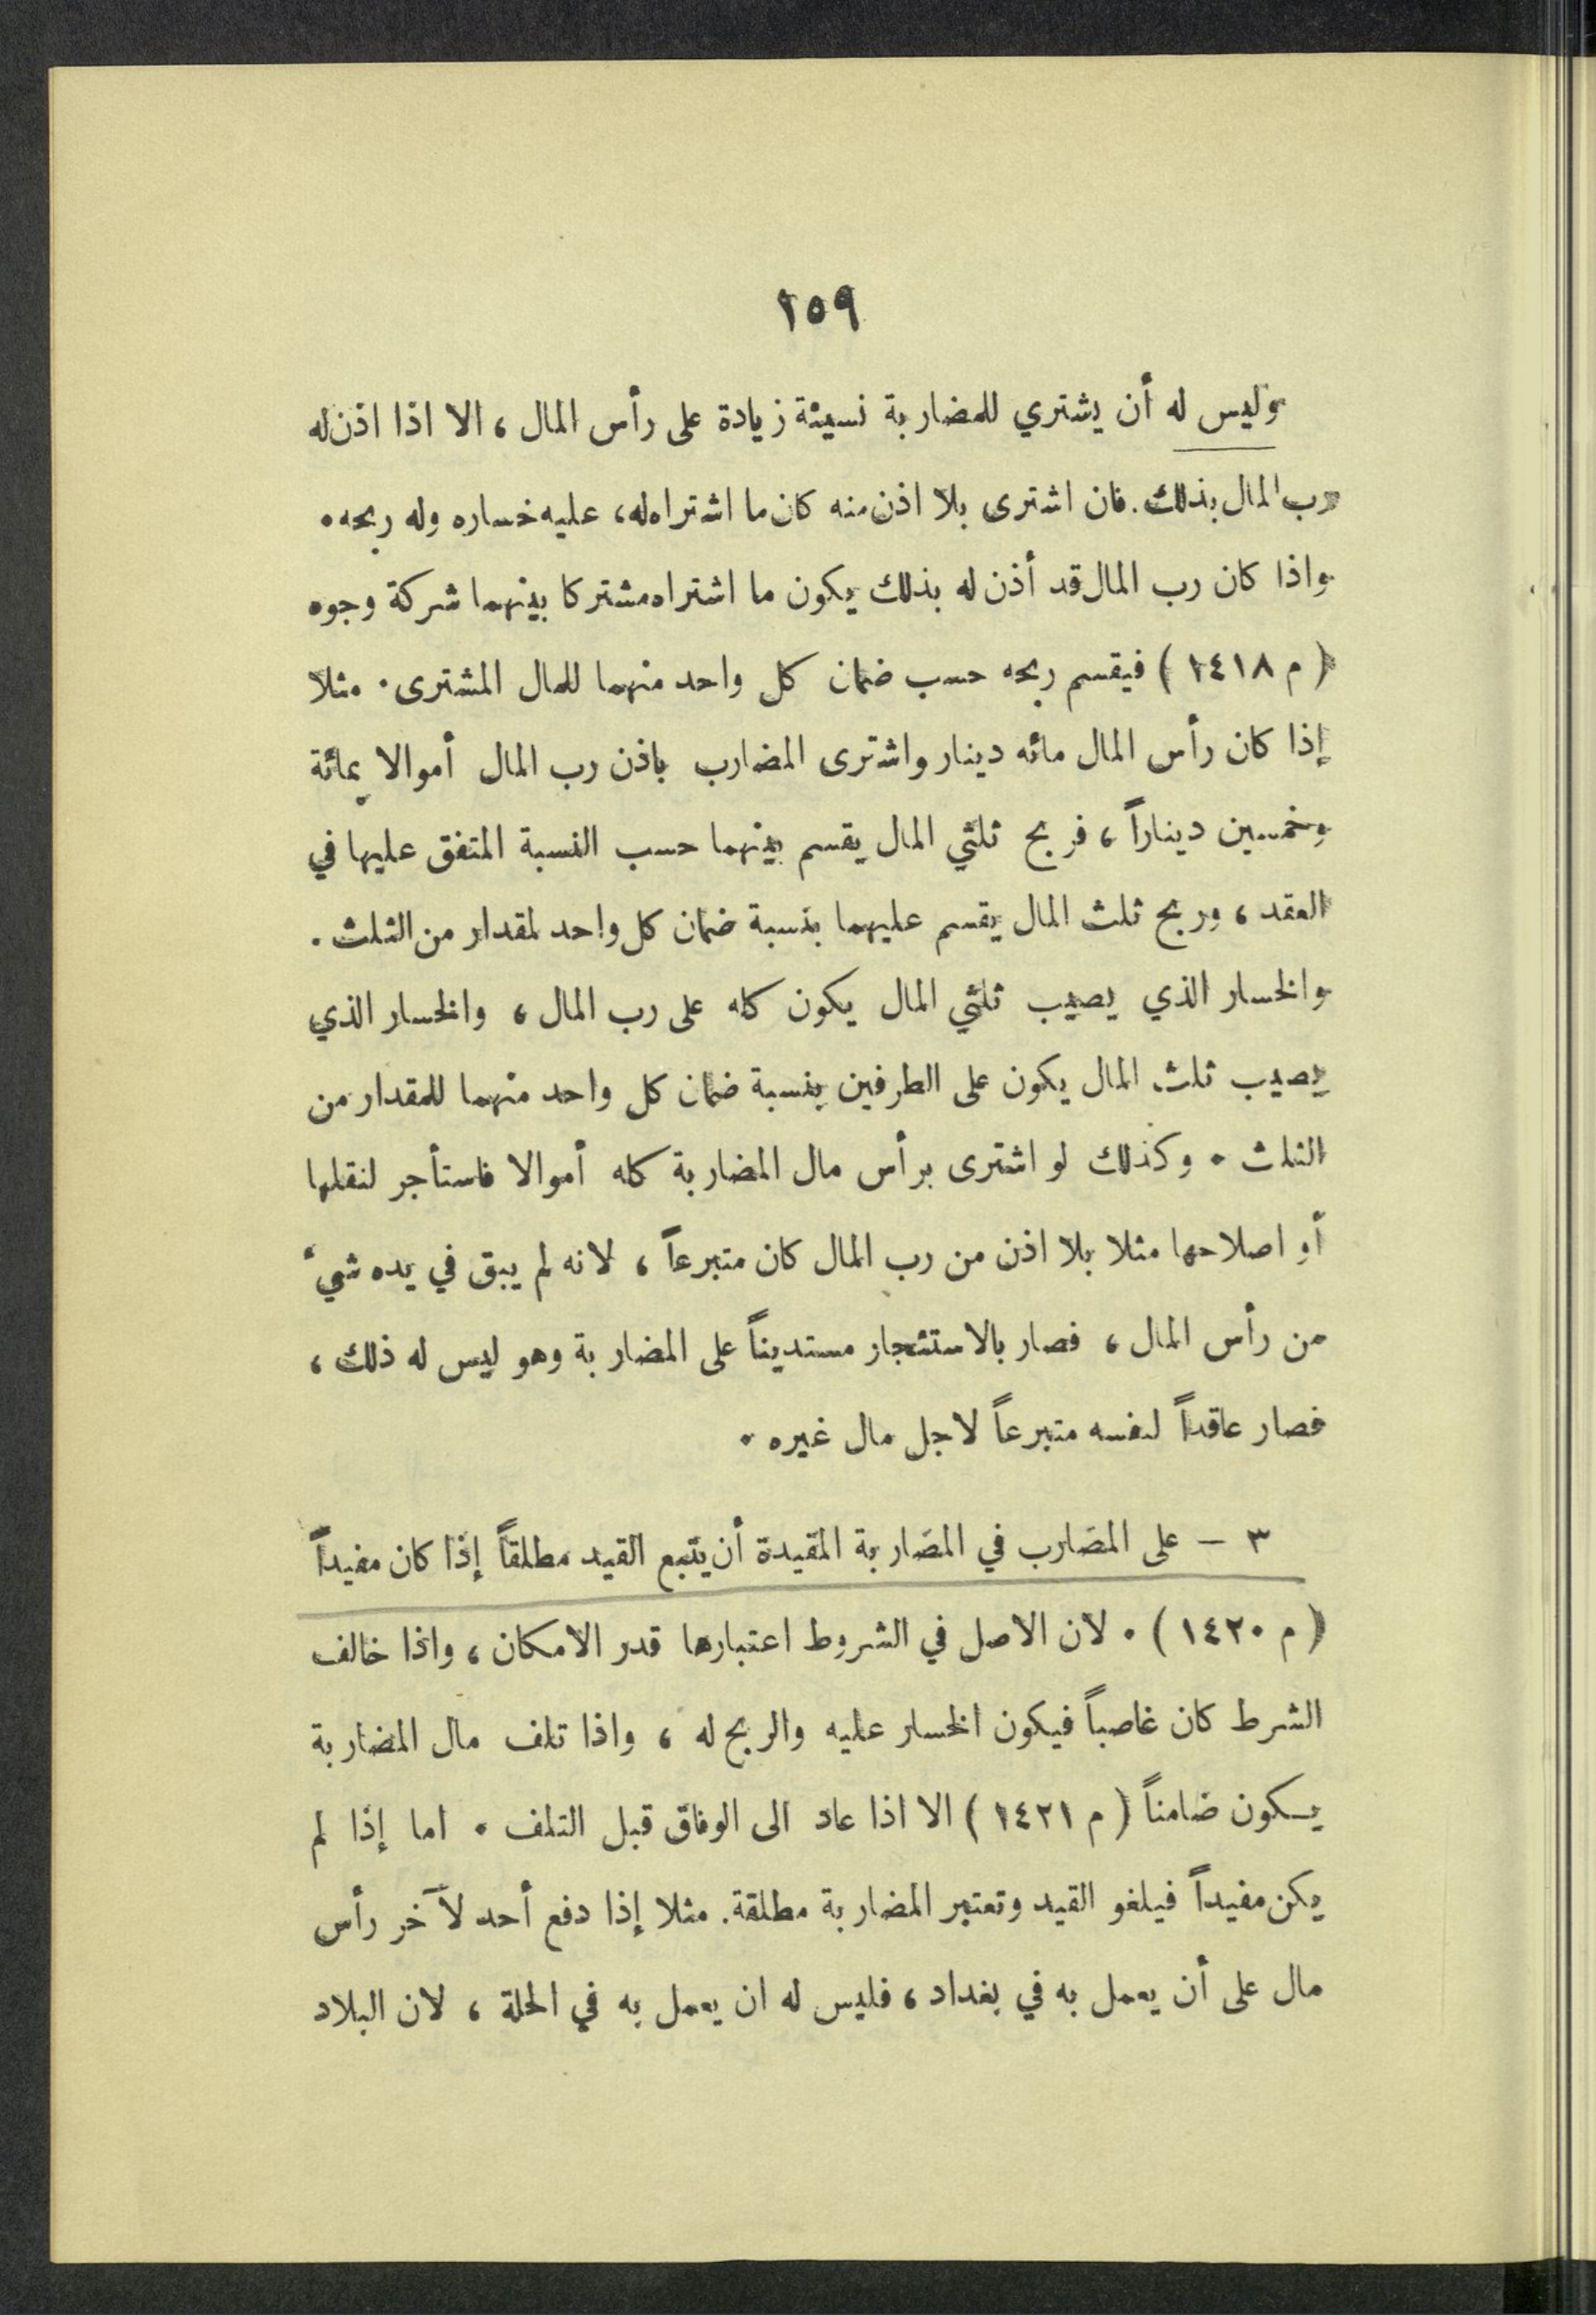 ١٥٩
وليس له أن يشتري للمضاربة نسيئة زيادة على رأس المال، الا اذا اذن له
رب المال بذلك. فان اشترى بلا اذن منه كان ما اشتراه له، عليه خساره وله ربحه.
واذا كان رب المال قد أذن له بذلك يكون ما اشتراه مشتركا بينهما شركة وجوه
(م ١٤١٨) فيقسم ربحه حسب ضمان كل واحد منهما للمال المشترى. مثلا
إذا كان رأس المال مائه دينار واشترى المضارب باذن رب المال أموالا بمائة
وخمسين ديناراً، فربح ثلثي المال يقسم بينهما حسب النسبة المتفق عليها في
العقد، وربح ثلث المال يقسم عليهما بنسبة ضمان كل واحد لمقدار من الثلث.
والخسار الذي يصيب ثلثي المال يكون كله على رب المال، والخسار الذي
يصيب ثلث المال يكون على الطرفين بنسبة ضمان كل واحد منهما للمقدار من
الثلث. وكذلك لو اشترى برأس مال المضاربة كله أموالا فاستأجر لنقلها
أو اصلاحها مثلا بلا اذن من رب المال كان متبرعاً، لانه لم يبق في يده شيء
من رأس المال، فصار بالاستئجار مستديناً على المضاربة وهو ليس له ذلك،
فصار عاقداً لنفسه متبرعاً لاجل مال غيره.
٣ - على المضارب في المضاربة المقيدة أن يتبع القيد مطلقاً إذا كان مفيداً
(م ١٤٢٠). لان الاصل في الشروط اعتبارها قدر الامكان، واذا خالف
الشرط كان غاصباً فيكون الخسار عليه والربح له، واذا تلف مال المضاربة
يكون ضامناً (م ١٤٢١) الا اذا عاد الى الوفاق قبل التلف. اما إذا لم
يكن مفيداً فيلغو القيد وتعتبر المضاربة مطلقة. مثلا إذا دفع أحد لآخر رأس
مال على أن يعمل به في بغداد، فليس له ان يعمل به في الحلة، لان البلاد